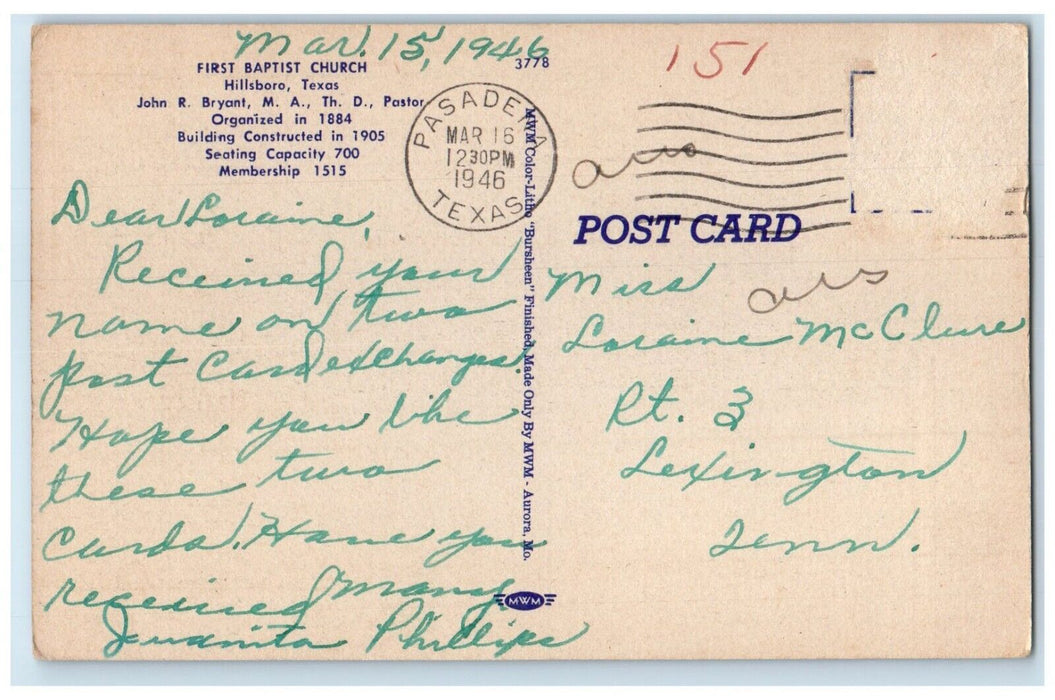 Mar. 15, 1946
3778
FIRST BAPTIST CHURCH
Hillsboro, Texas
John R. Bryant, M. A., Th. D., Pastor
Organized in 1884
Building Constructed in 1905
Seating Capacity 700
Membership 1515
Dear Loraine,
Received your
name on two
post Card exchanges.
Hope you like
these two
cards. Have you
received many
Juanita Phillips
MWM Color-Litho "Bursheen" Finished, Made Only By MWM - Aurora, Mo.
MWM
PASADENA
MAR 16
12 30PM
1946
TEXAS
151
POST CARD
Miss
Loraine McClure
Rt. 3
Lexington
Tenn.